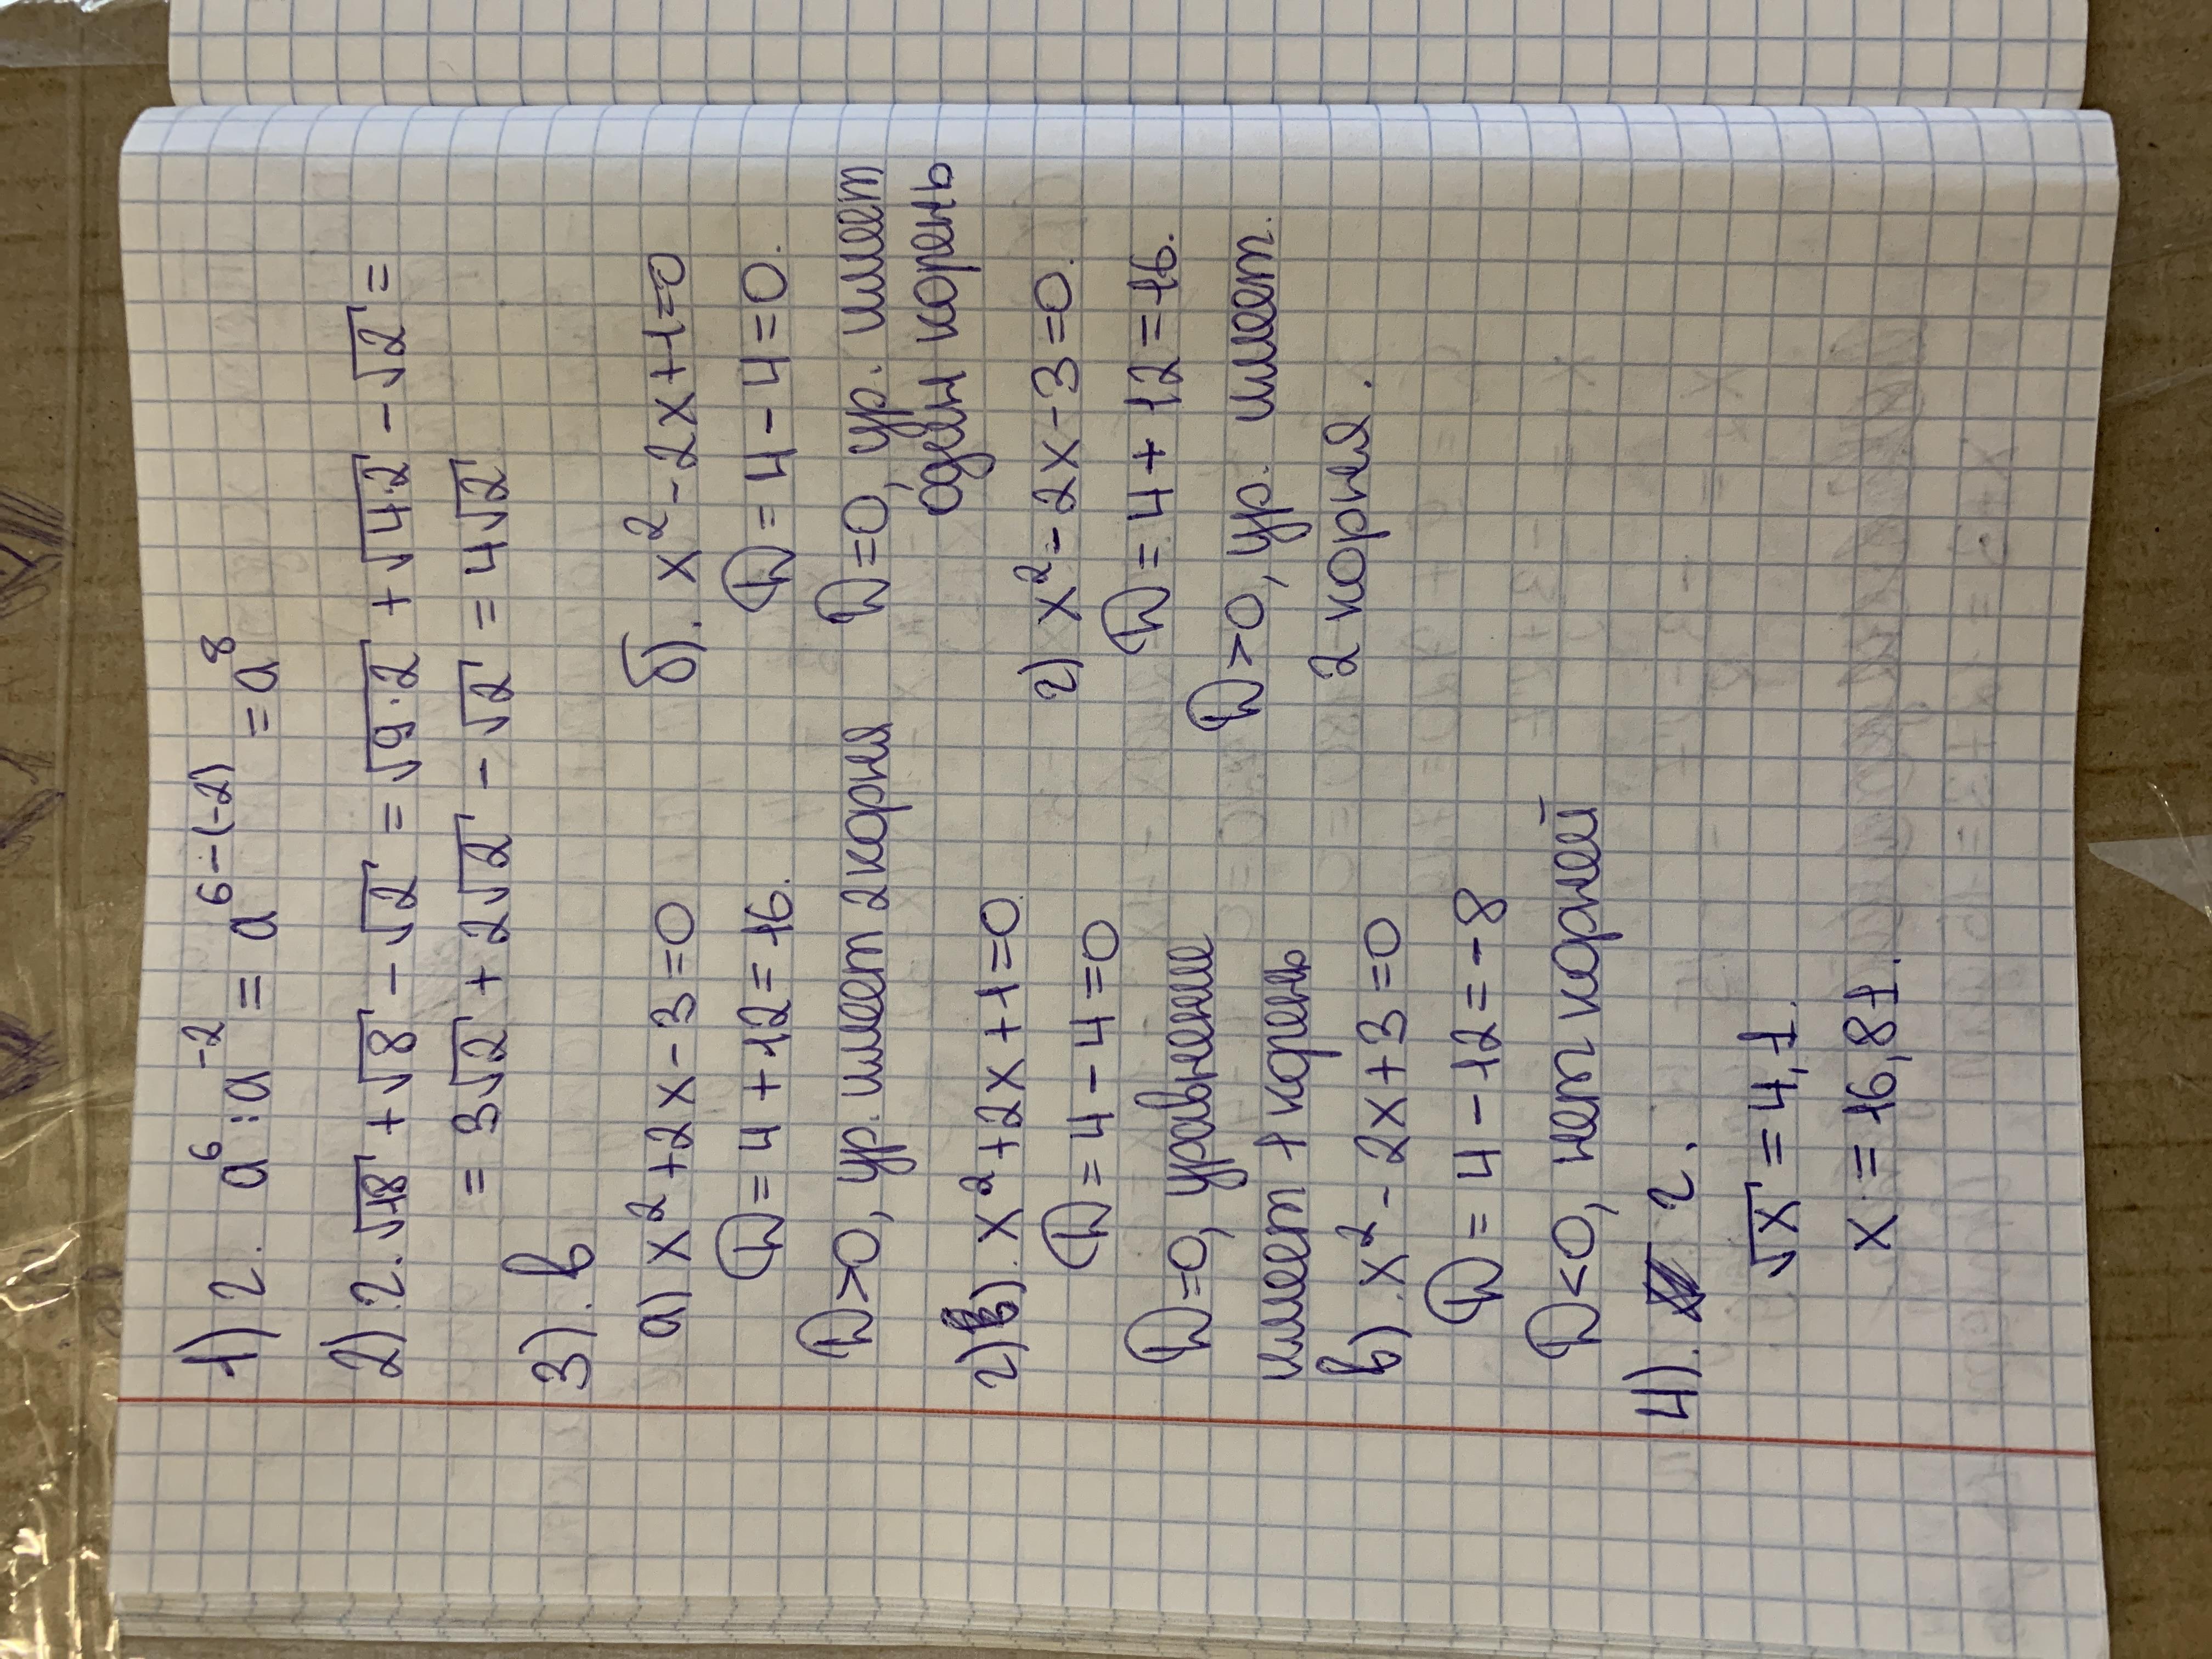 1) г. a⁶ : a⁻² = a⁶⁻⁽⁻²⁾ = a⁸
2). г. √18 + √8 - √2 = √9·2 + √4·2 - √2 =
= 3√2 + 2√2 - √2 = 4√2
3). в
а) x² + 2x - 3 = 0
D = 4 + 12 = 16.
D > 0, ур. имеет 2 корня
б). x² - 2x + 1 = 0
D = 4 - 4 = 0.
D = 0, ур. имеет
один корень
2) в). x² + 2x + 1 = 0.
D = 4 - 4 = 0
D = 0, уравнение
имеет 1 корень
г) x² - 2x - 3 = 0.
D = 4 + 12 = 16.
D > 0, ур. имеет.
2 корня.
в). x² - 2x + 3 = 0
D = 4 - 12 = -8
D < 0, нет корней
4). г.
√x = 4,1.
x = 16,81.